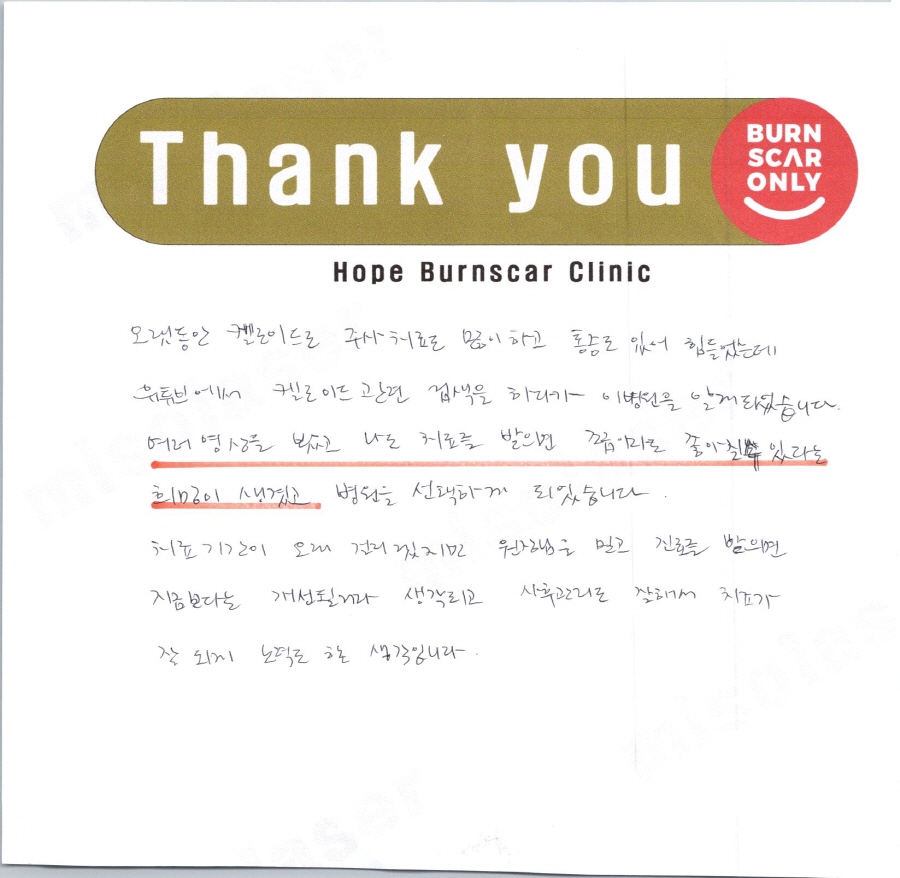 Thank you
BURN
SCAR
ONLY
Hope Burnscar Clinic
오랫동안 켈로이드로 주사치료로 많이 하고 통증도 있어 힘들었는데
유튜브에서 켈로이드 관련 검색을 하다가 이병원을 알게되었습니다.
여러 영상을 봤고 나도 치료를 받으면 좋아질수 있다는
희망이 생겼고 병원을 선택하게 되었습니다.
치료기간이 오래 걸리겠지만 원장님을 믿고 진료를 받으면
지금보다는 개선될거라 생각하고 사후관리도 잘해서 치료가
잘 되게 노력도 하는 생각입니다.